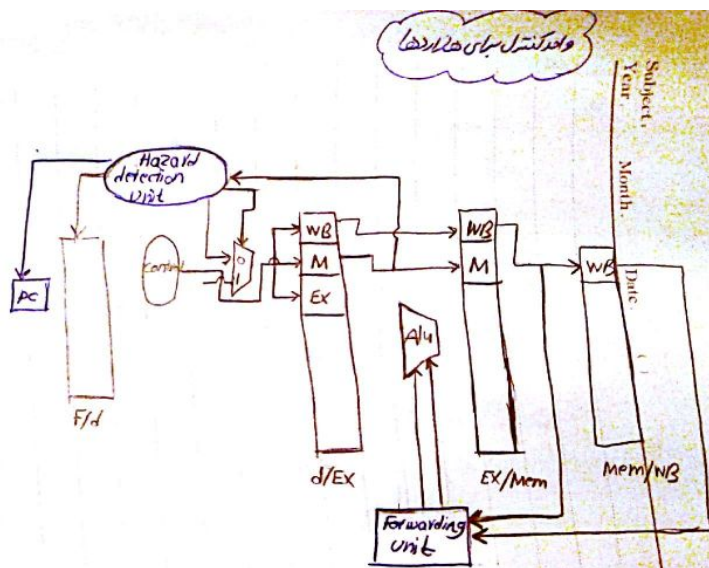 واحد کنترل برای هازاردها
Subject.
Year. Month. Date.
Hazard
detection
unit
PC
F/d
control
0
1
WB
M
EX
d/EX
Alu
WB
M
EX/Mem
WB
Mem/WB
Forwarding
unit